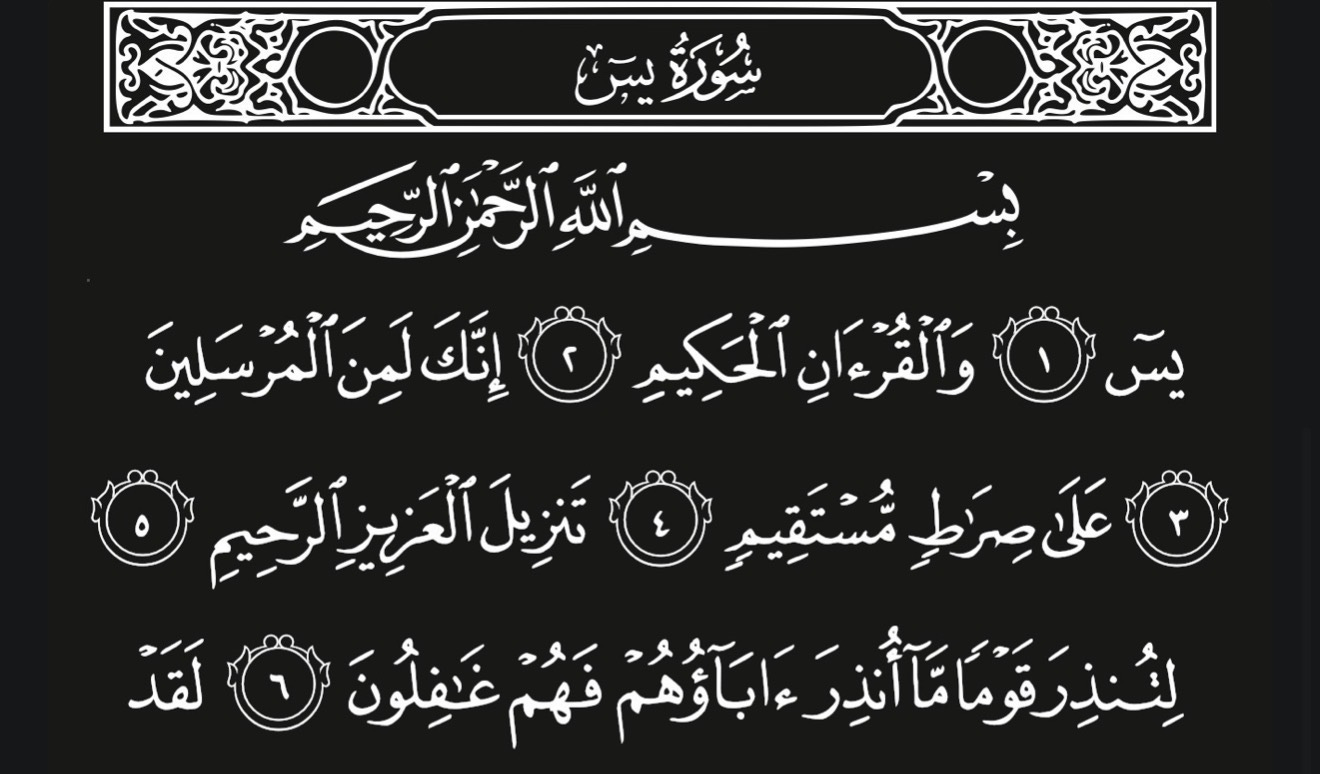 سُورَةُ يسٓ
بِسْمِ ٱللَّهِ ٱلرَّحْمَٰنِ ٱلرَّحِيمِ
يسٓ ١ وَٱلْقُرْءَانِ ٱلْحَكِيمِ ٢ إِنَّكَ لَمِنَ ٱلْمُرْسَلِينَ
٣ عَلَىٰ صِرَٰطٍ مُّسْتَقِيمٍ ٤ تَنزِيلَ ٱلْعَزِيزِ ٱلرَّحِيمِ ٥
لِتُنذِرَ قَوْمًا مَّآ أُنذِرَ ءَابَآؤُهُمْ فَهُمْ غَٰفِلُونَ ٦ لَقَدْ